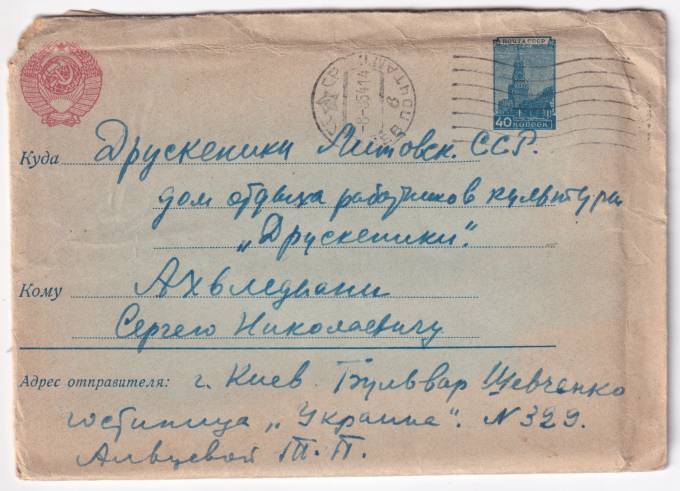 ПОЧТА СССР
40 КОПЕЕК
ПОЧТАМТ
Куда Друскеники Литовск. ССР.
дом отдыха работников культуры
„Друскеники".
Кому Ахвледиани
Сергею Николаевичу
Адрес отправителя: г. Киев Бульвар Шевченко
гостиница „Украина". N 329.
Альцевой Т. П.